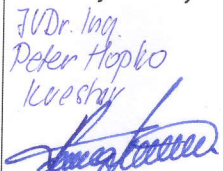 JUDr. Ing.
Peter Hopko
kvestor